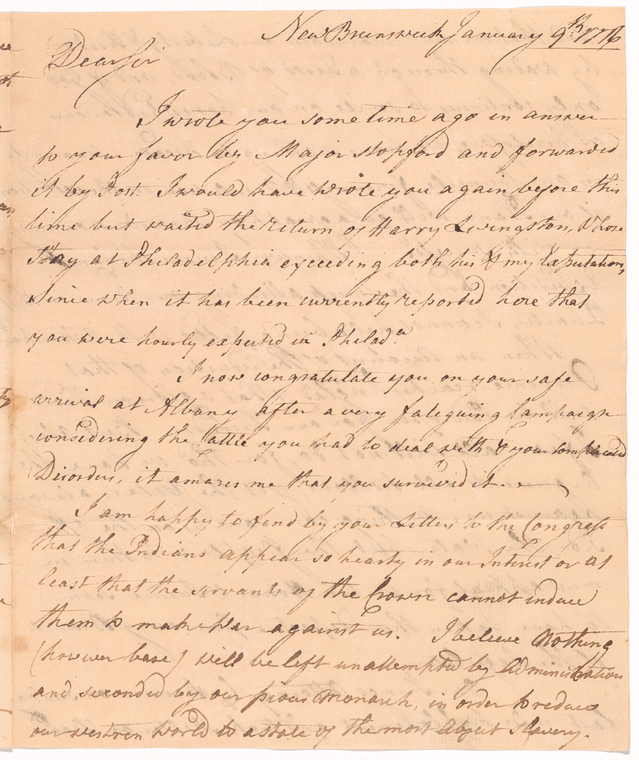 New Brunswick January 9th 1776
Dear Sir
I wrote you some time ago in answer
to your favor by Major Stopford and forwarded
it by Post. I would have wrote you again before this
time but waited the return of Harry Livingston, whose
Stay at Philadelphia exceeding both his & my Expectation,
Since when it has been currently reported here that
you were hourly expected in Philada
I now congratulate you on your safe
arrival at Albany after a very fateguing Campaign
considering the Cattle you had to deal with & your complicated
Disorders, it amazes me that you survived it.
I am happy to find by your Letters to the Congress
that the Indians appear so hearty in our Interest or at
least that the servants of the Crown cannot induce
them to make War against us. I believe Nothing
(however base) will be left unattempted by Administration
and seconded by our pious Monarch, in order to reduce
our western world to a state of the most abject Slavery.